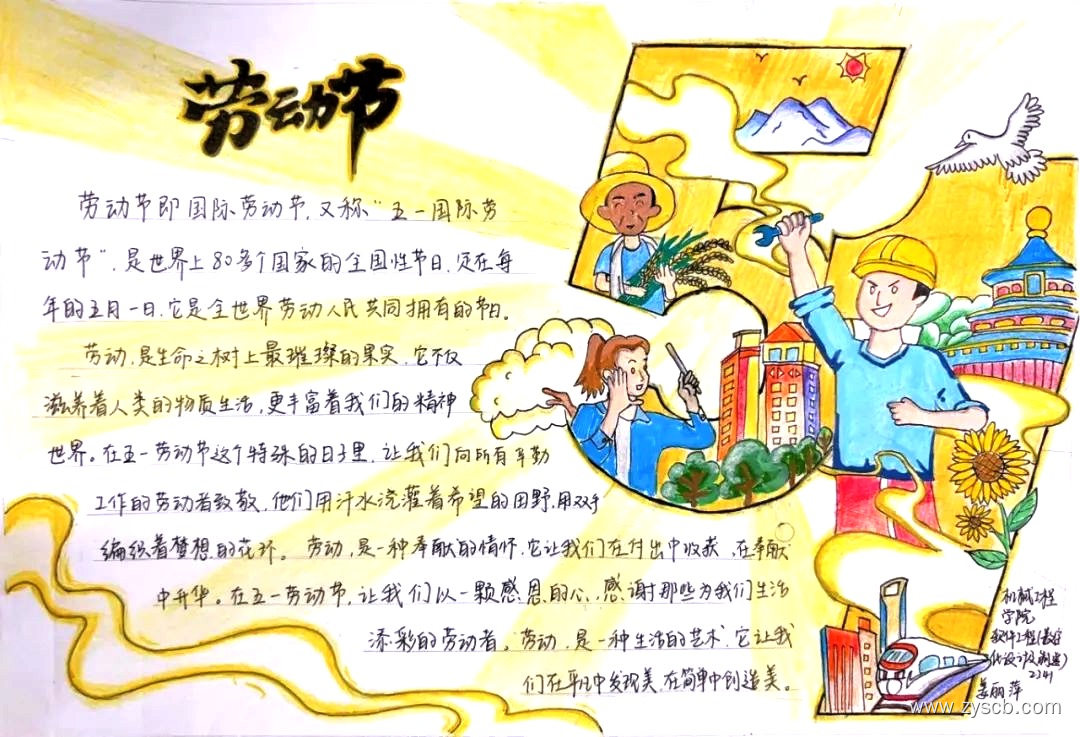 劳动节
劳动节即国际劳动节,又称“五一国际劳
动节”,是世界上80多个国家的全国性节日,定在每
年的五月一日,它是全世界劳动人民共同拥有的节日。
劳动,是生命之树上最璀璨的果实,它不仅
滋养着人类的物质生活,更丰富着我们的精神
世界。在五一劳动节这个特殊的日子里,让我们向所有辛勤
工作的劳动者致敬,他们用汗水浇灌着希望的田野,用双手
编织着梦想的花环。劳动,是一种奉献的情怀,它让我们在付出中收获,在奉献
中升华。在五一劳动节,让我们以一颗感恩的心,感谢那些为我们生活
添彩的劳动者。劳动,是一种生活的艺术,它让我
们在平凡中发现美,在简单中创造美。
机械工程
学院
2341
姜丽萍
www.zyscb.com